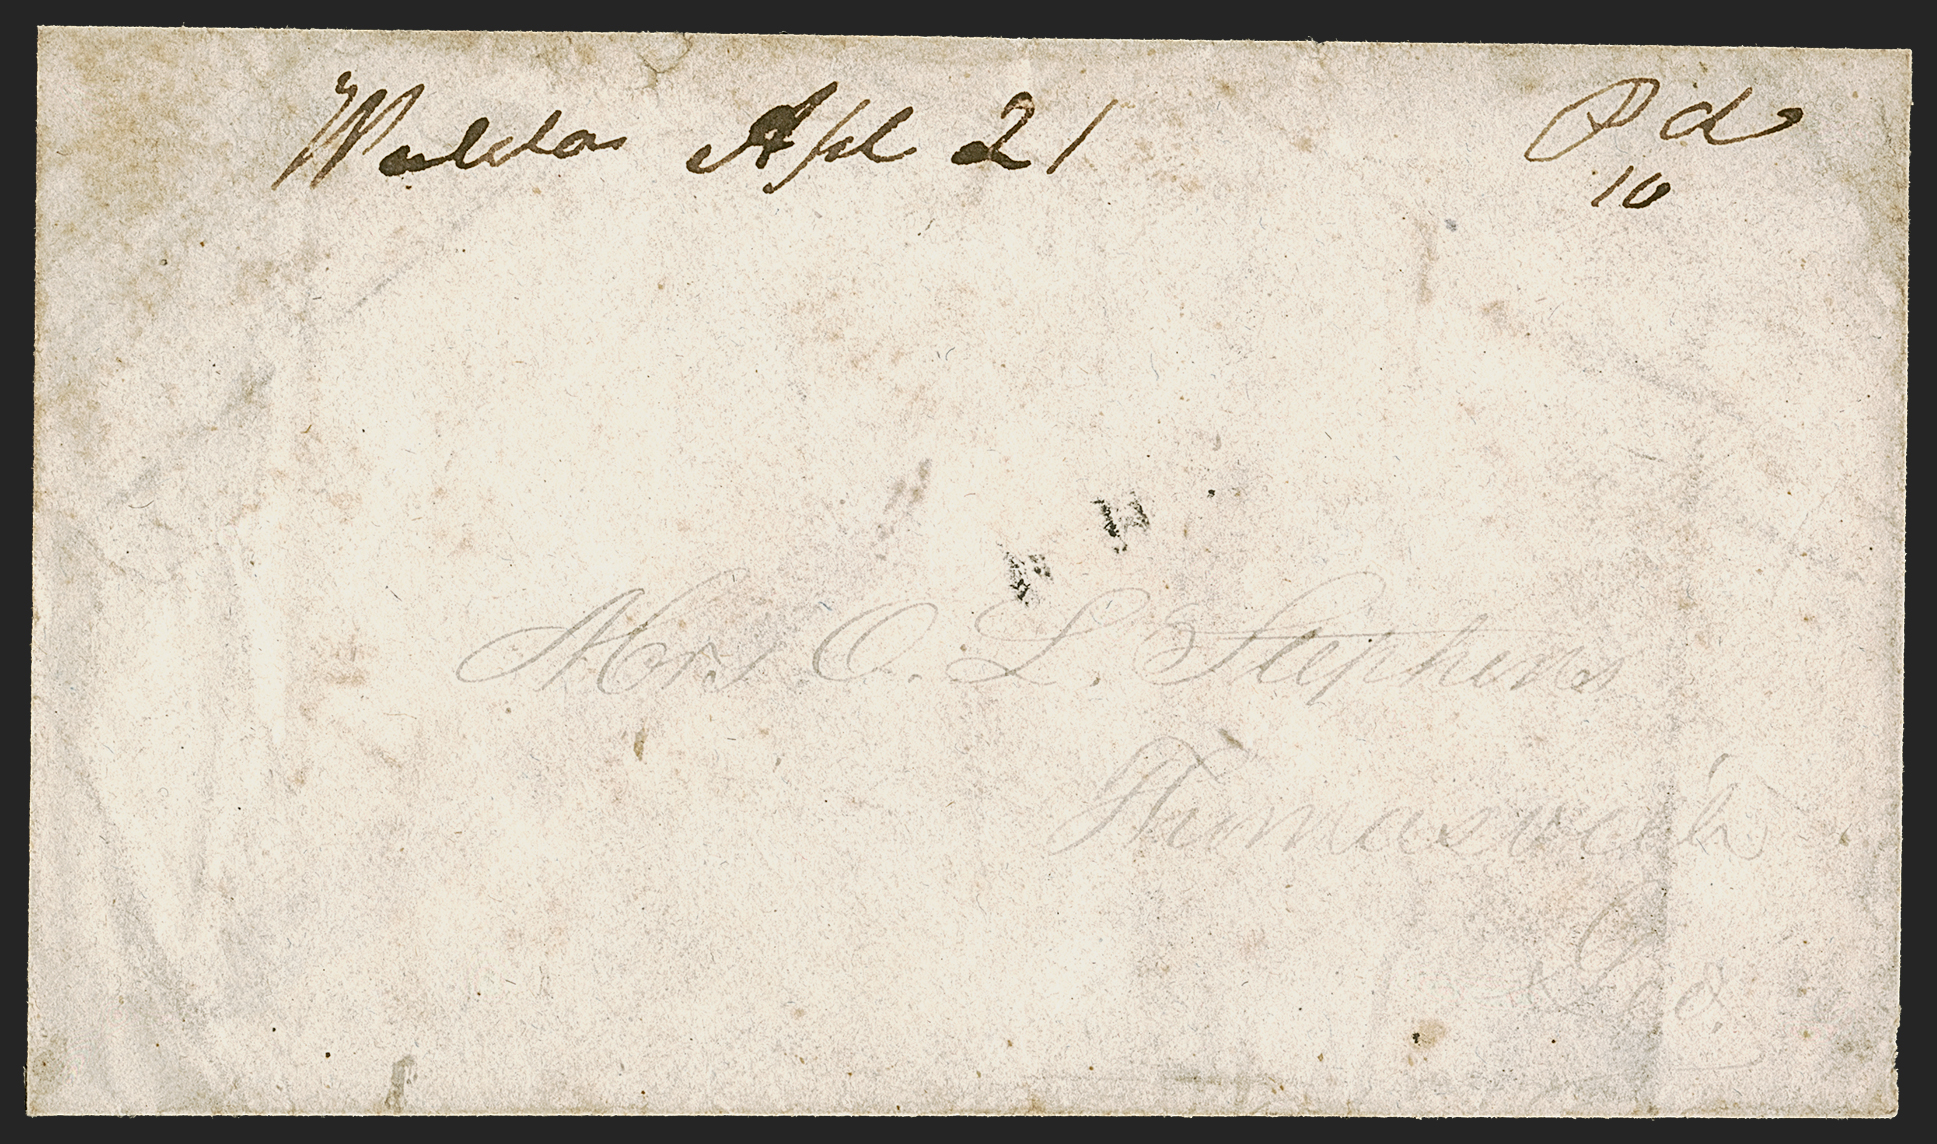 Waldo Apl 21
Pd
10
Mrs O. L. Stephens
Thomasville
Geo.